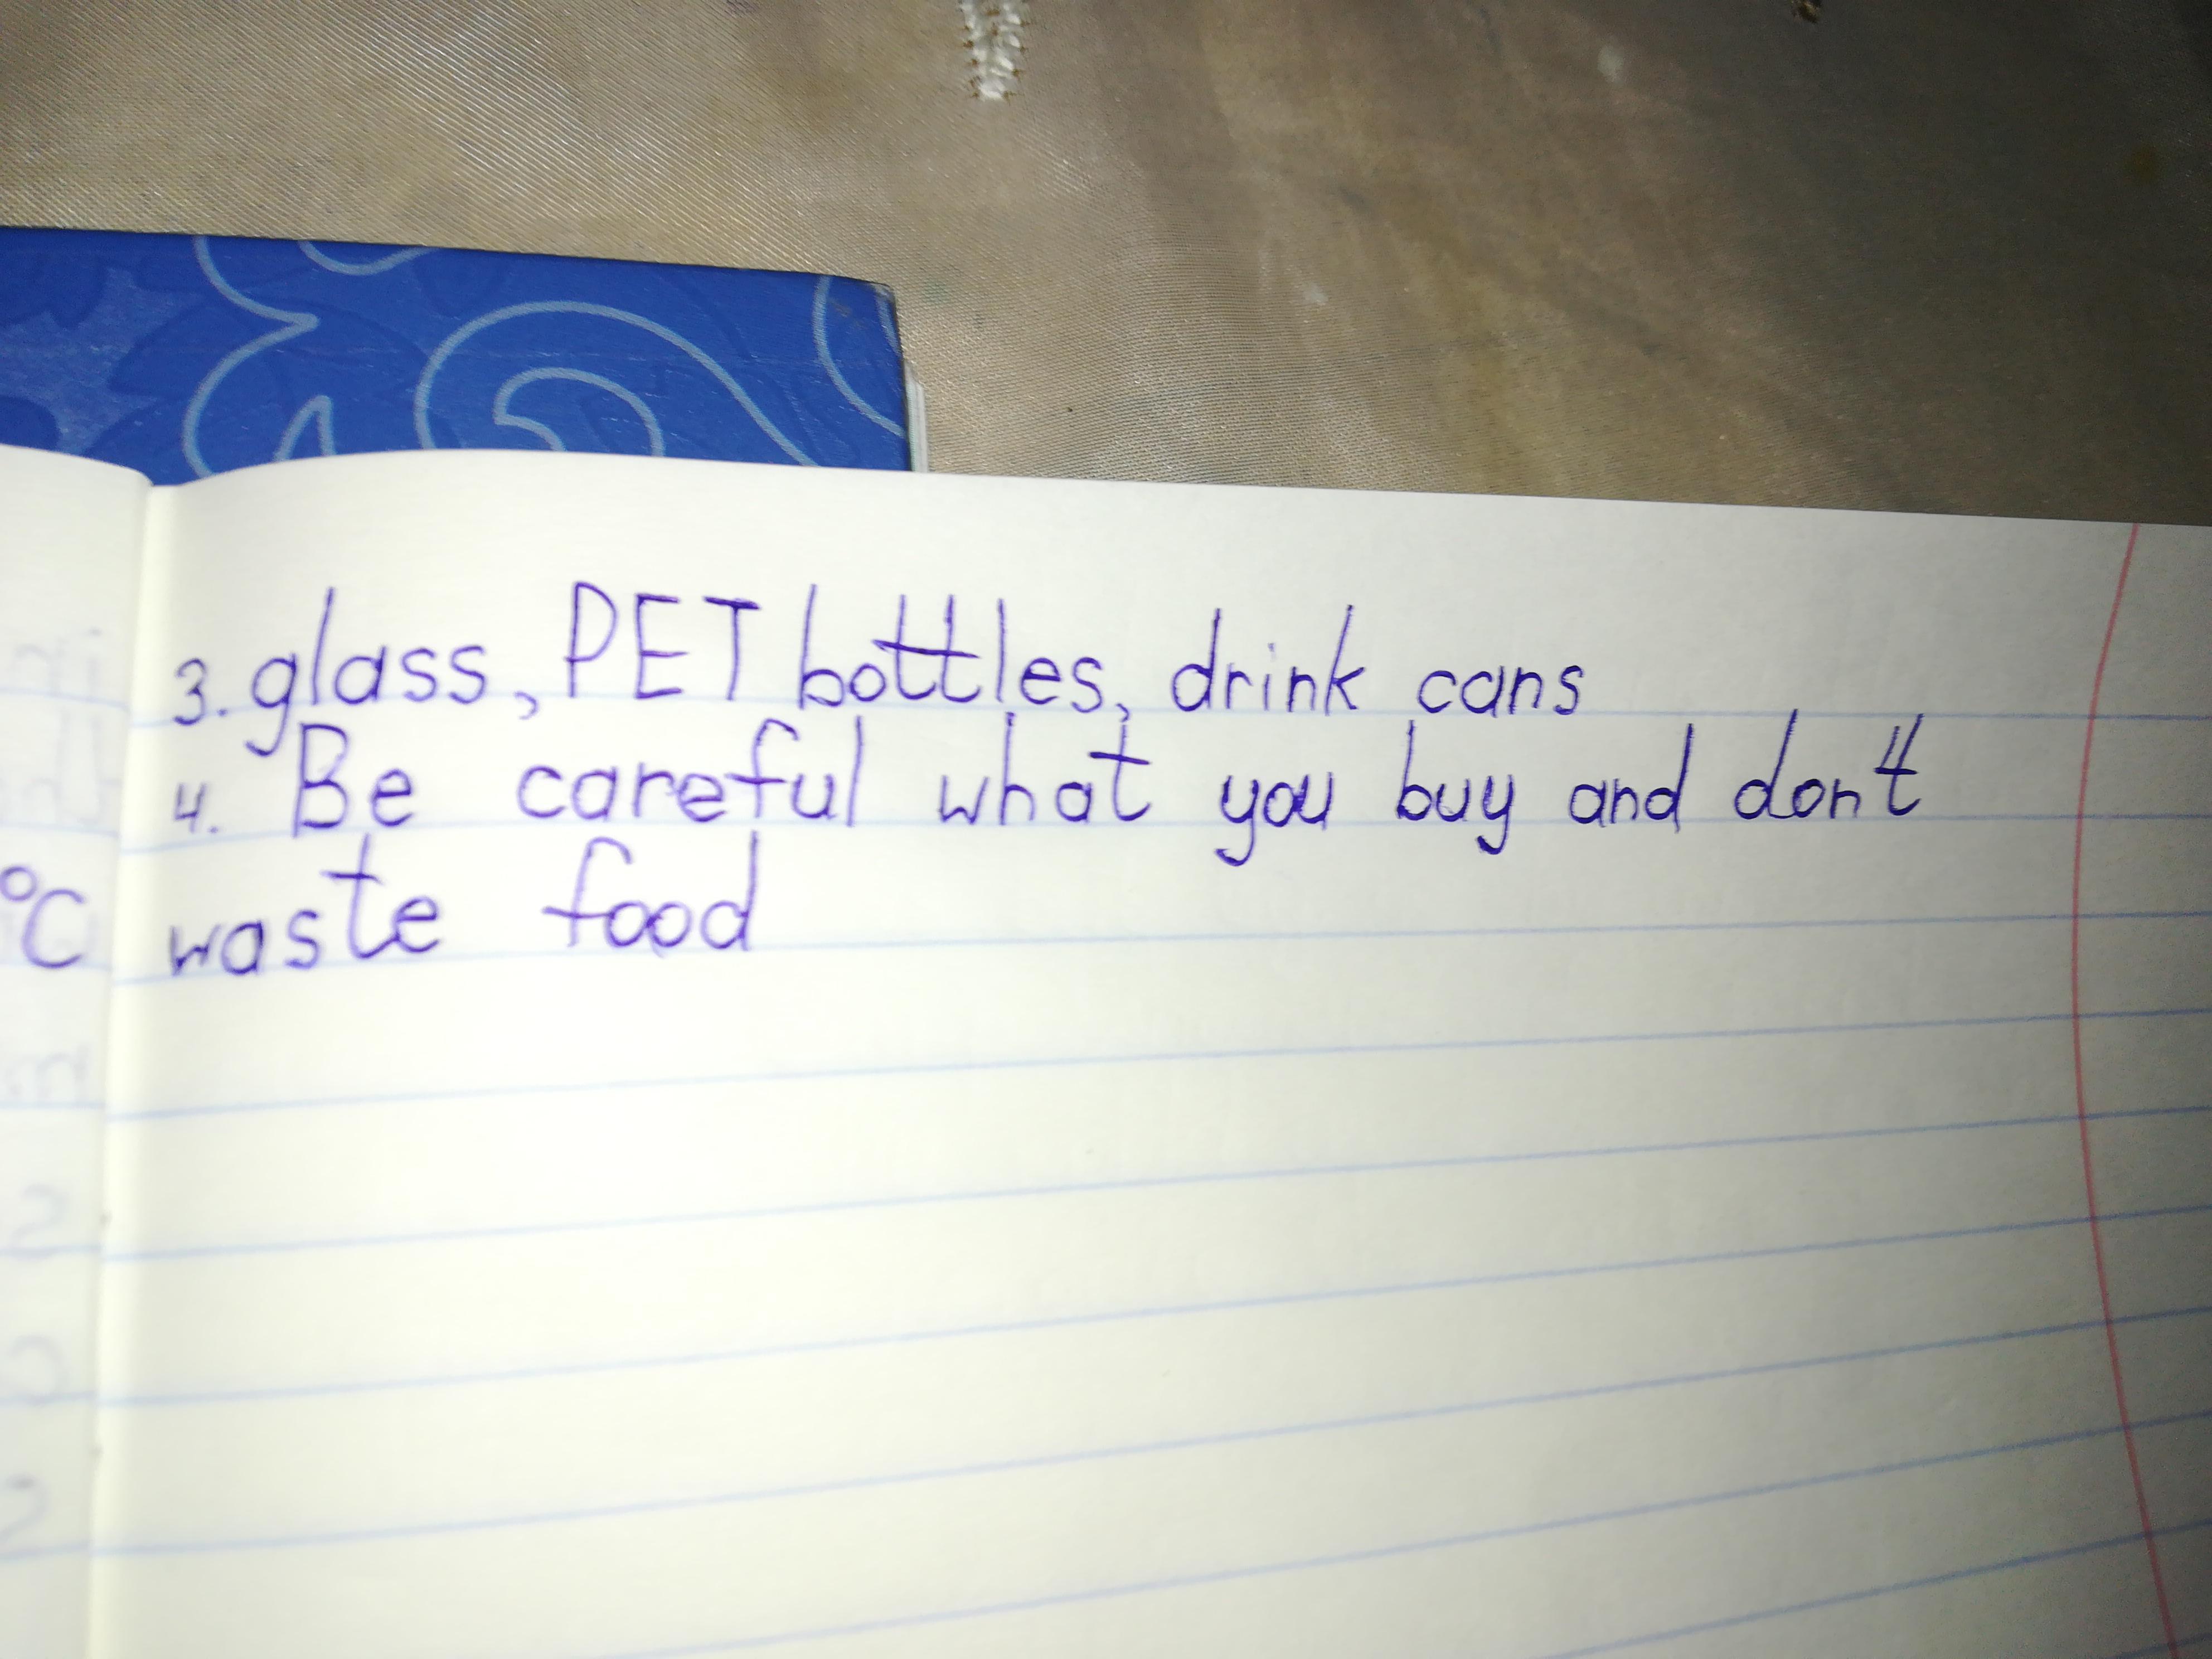 3. glass, PET bottles, drink cans
4. Be careful what you buy and don't
waste food
°C